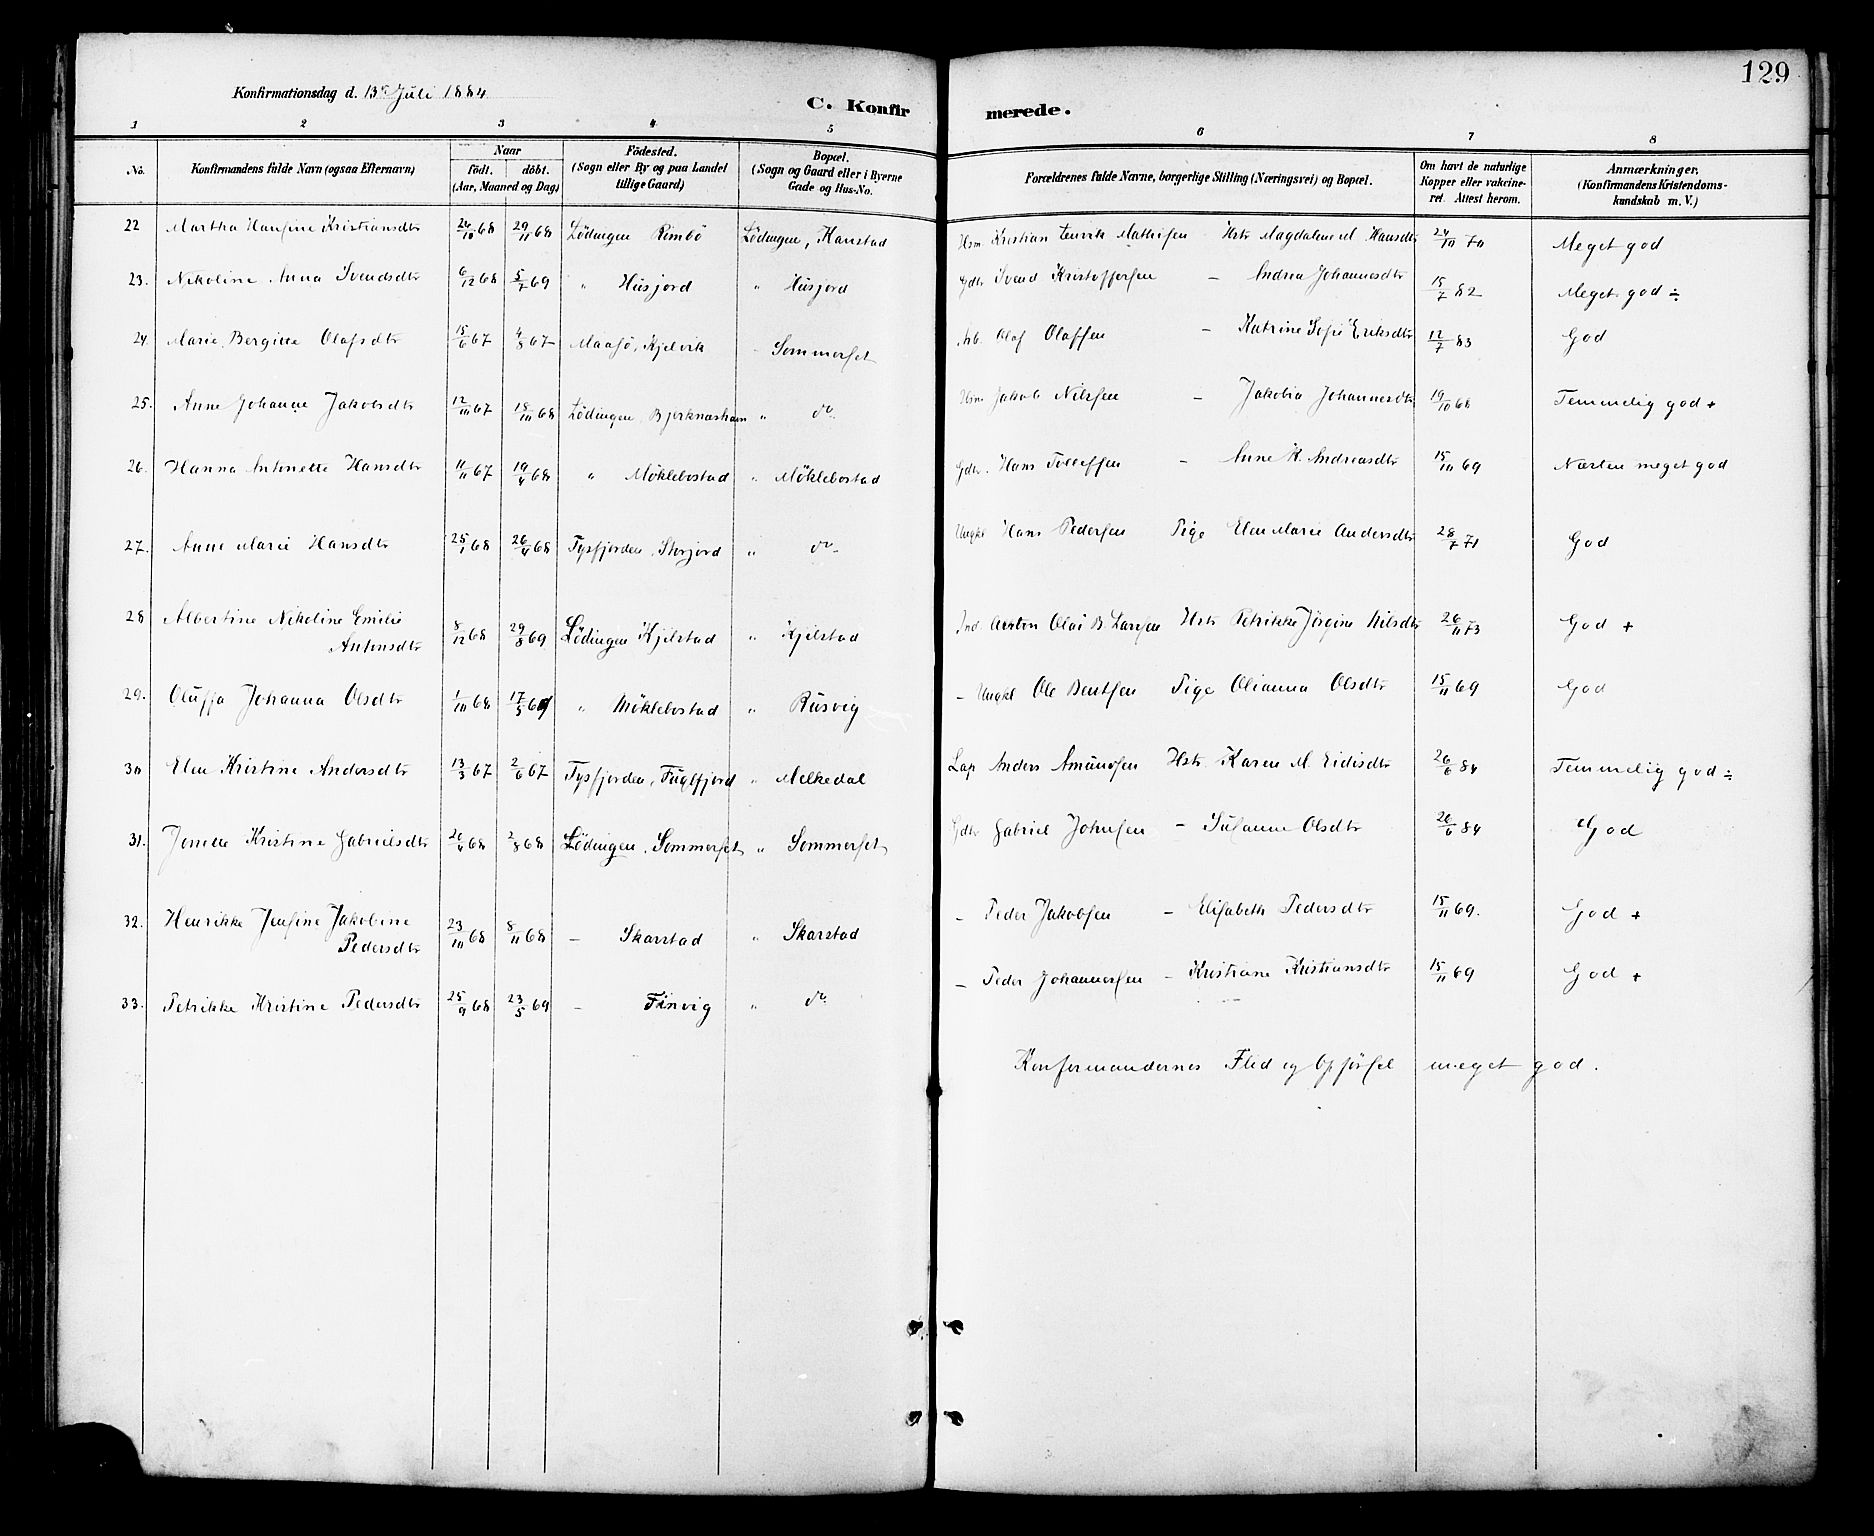 129
Konfirmationsdag d. 13de Juli 1884
C. Konfirmerede.
1 2 3 4 5 6 7 8
No. Konfirmandens fulde Navn (ogsaa Efternavn) Naar födt. döbt. (Aar, Maaned og Dag) Födested. (Sogn eller By og paa Landet tillige Gaard) Bopæl. (Sogn og Gaard eller i Byerne Gade og Hus-No. Forældrenes fulde Navne, borgerlige Stilling (Næringsvei) og Bopæl. Om havt de naturlige Kopper eller vakcineret. Attest herom. Anmærkninger. (Konfirmandens Kristendomskundskab m. V.)
22 Martha Hansine Kristiansdtr 24/10 68 29/11 68 Lödingen Rimbö Lödingen, Kanstad Hsm Kristian Henrik Mathisen Hstr Magdalene M. Hansdtr 24/10 70 Meget god
23. Nikoline Anna Svendsdtr 6/12 68 5/7 69 " Husjord " Husjord Gdbr Svend Kristoffersen – Andrea Johannesdtr 15/7 82 Meget god ÷
24. Marie Bergitte Olafsdtr 15/6 67 4/8 67 Maasö, Kjelvik – Sommerset Arb. Olaf Olaffsen – Katrine Sofie Eriksdtr 12/7 83 God
25. Anne Johanne Jakobsdtr 12/10 67 18/10 68 Lödingen Bjerknæshavn " do. Hsm Jakob Nilssen – Jakobia Johannesdtr 19/10 68 Temmelig god +
26. Hanna Antonette Hansdtr 11/11 67 19/4 68 " Möklebostad " Möklebostad Gdbr. Hans Tollefsen – Anne K. Andreasdtr 15/10 69 Næsten meget god
27. Anne Marie Hansdtr 25/1 68 26/4 68 Tysfjorden, Storjord " do. Ungkl Hans Pedersen Pige Elen Marie Andersdtr 28/7 71 God
28 Albertine Nikoline Emilie
Antonsdtr 8/12 68 29/8 69 Lödingen Kjelstad " Kjelstad Ind. Anton Olai B. Larsen Hstr Petrikke Jörgine Nilsdtr 26/11 73 God +
29. Oluffa Johanna Olsdtr 1/10 68 17/5 69 " Möklebostad " Rusvig – Ungkl Ole Bentsen Pige Olianna Olsdtr 15/11 69 God
30 Elen Kristine Andersdtr 13/3 67 2/6 67 Tysfjorden, Fuglfjord " Melkedal Lap Anders Amundsen Hstr. Karen M. Eidisdtr 26/6 84 Temmelig god ÷
31. Jonette Kristine Gabrielsdtr 26/4 68 2/8 68 Lödingen, Sommerset " Sommerset Gdbr Gabriel Johnsen – Susanne Olsdtr 26/6 84 God
32. Henrikke Jensine Jakobine
Pedersdtr 23/10 68 8/11 68 – Skarstad " Skarstad – Peder Jakobsen – Elisabeth Pedersdtr 15/11 69. God +
33. Petrikke Kristine Pedersdtr 25/9 68 23/5 69 – Finvig " do. – Peder Johannessen – Kristiane Kristiansdtr 15/11 69 God +
Konfirmandernes Flid og Opførsel meget god.